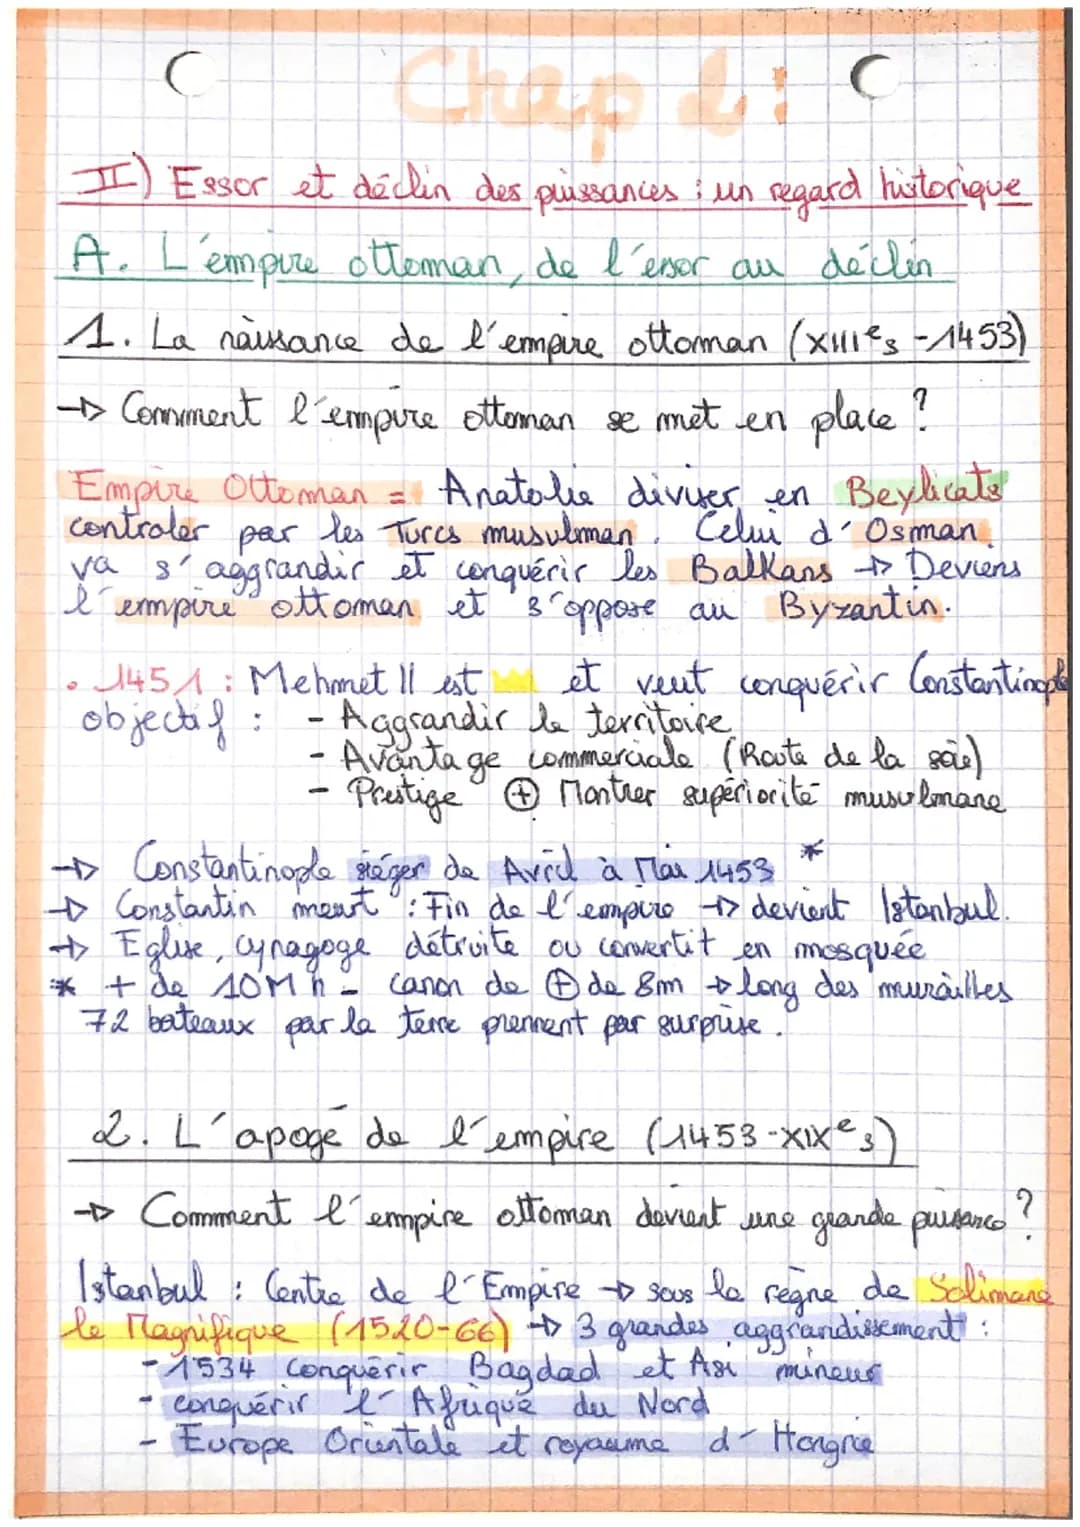 Chap 2:
II) Essor et déclin des puissances : un regard historique
A. L'empire ottoman, de l'essor au déclin
1. La naissance de l'empire ottoman (XIIIe s -1453)
→ Comment l'empire ottoman se met en place ?
Empire Ottoman = Anatolie diviser en Beylicats
controler par les Turcs musulman. Celui d'Osman
va s'aggrandir et conquérir les Balkans → Deviens
l'empire ottoman et s'oppose au Byzantin.
• 1451 : Mehmet II est 👑 et veut conquérir Constantinople
objectif : - Aggrandir le territoire
- Avantage commerciale (Route de la soie)
- Prestige ⊕ Montrer supériorité musulmane
→ Constantinople siéger de Avril à Mai 1453 *
→ Constantin meurt : Fin de l'empire → devient Istanbul.
→ Eglise, cynagoge détruite ou convertit en mosquée
* + de 10M h - canon de ⊕ de 8m → long des murailles
72 bateaux par la terre prennent par surprise.
2. L'apogé de l'empire (1453-XIXe s)
→ Comment l'empire ottoman devient une grande puissance ?
Istanbul : Centre de l'Empire → sous le règne de Solimane
le Magnifique (1520-66) → 3 grandes aggrandissement :
- 1534 conquérir Bagdad et Asi mineur
- conquérir l'Afrique du Nord
- Europe Orientale et royaume d'Hongrie